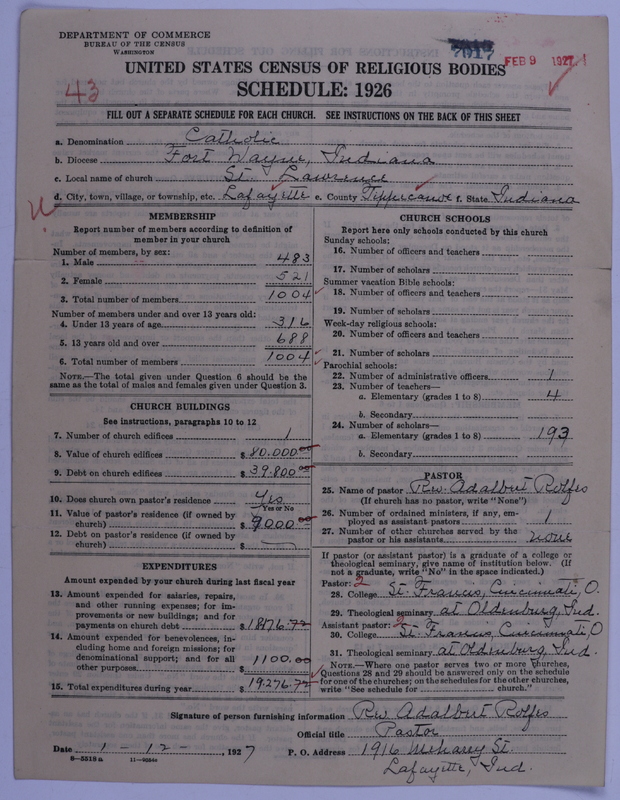 DEPARTMENT OF COMMERCE
BUREAU OF THE CENSUS
WASHINGTON
7017
FEB 9 1927
UNITED STATES CENSUS OF RELIGIOUS BODIES
SCHEDULE: 1926
43
FILL OUT A SEPARATE SCHEDULE FOR EACH CHURCH. SEE INSTRUCTIONS ON THE BACK OF THIS SHEET
a. Denomination Catholic
b. Diocese Fort Wayne, Indiana
c. Local name of church St. Lawrence
d. City, town, village, or township, etc. Lafayette e. County Tippecanoe f. State Indiana
MEMBERSHIP
Report number of members according to definition of
member in your church
Number of members, by sex:
1. Male 483
2. Female 521
3. Total number of members 1004
Number of members under and over 13 years old:
4. Under 13 years of age 316
5. 13 years old and over 688
6. Total number of members 1004
NOTE.—The total given under Question 6 should be
same as the total of males and females given under Question 3.
CHURCH BUILDINGS
See instructions, paragraphs 10 to 12
7. Number of church edifices 1
8. Value of church edifices $ 80.000.00
9. Debt on church edifices $ 39.800.00
10. Does church own pastor's residence Yes
Yes or No
11. Value of pastor's residence (if owned by
church) $ 9000.00
12. Debt on pastor's residence (if owned by
church) $ —
EXPENDITURES
Amount expended by your church during last fiscal year
13. Amount expended for salaries, repairs,
and other running expenses; for im-
provements or new buildings; and for
payments on church debt $ 18176.72
14. Amount expended for benevolences, in-
cluding home and foreign missions; for
denominational support; and for all
other purposes $ 1100.00
15. Total expenditures during year $ 19276.72
CHURCH SCHOOLS
Report here only schools conducted by this church
Sunday schools:
16. Number of officers and teachers
17. Number of scholars
Summer vacation Bible schools:
18. Number of officers and teachers
19. Number of scholars
Week-day religious schools:
20. Number of officers and teachers
21. Number of scholars
Parochial schools:
22. Number of administrative officers 1
23. Number of teachers—
a. Elementary (grades 1 to 8) 4
b. Secondary
24. Number of scholars—
a. Elementary (grades 1 to 8) 193
b. Secondary
PASTOR
25. Name of pastor Rev. Adalbert Rolfes
(If church has no pastor, write "None")
26. Number of ordained ministers, if any, em-
ployed as assistant pastors 1
27. Number of other churches served by the
pastor or his assistants none
If pastor (or assistant pastor) is a graduate of a college or
theological seminary, give name of institution below. (If
not a graduate, write "No" in the space indicated.)
Pastor: 2
28. College St. Francis, Cincinnati, O.
29. Theological seminary at Oldenburg, Ind.
Assistant pastor: 2
30. College St. Francis, Cincinnati, O
31. Theological seminary at Oldenburg, Ind.
NOTE.—Where one pastor serves two or more churches,
Questions 28 and 29 should be answered only on the schedule
for one of the churches; on the schedules for the other churches,
write "See schedule for church."
Signature of person furnishing information Rev. Adalbert Rolfes
Official title Pastor
Date 1-12-, 1927 P. O. Address 1916 Meharry St.
8—5518a 11—9554a Lafayette, Ind.